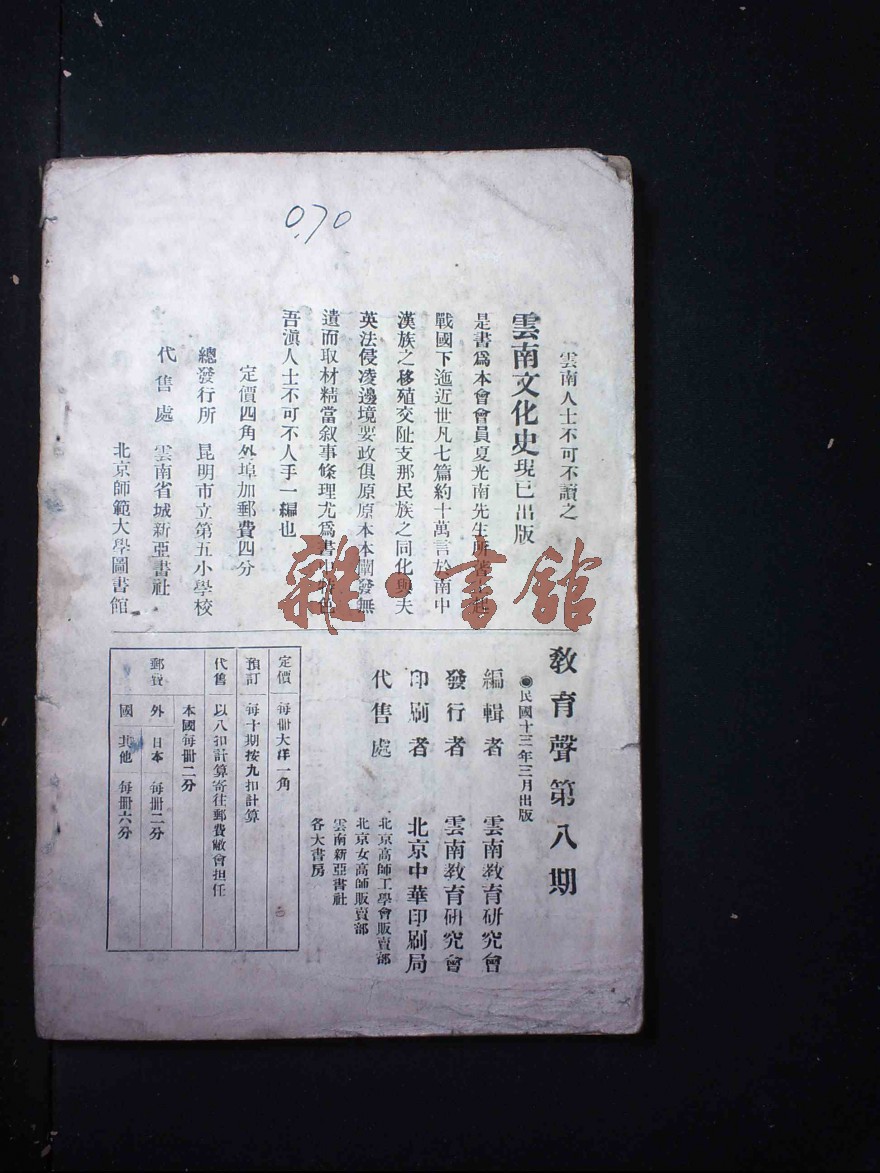 0.70
雲南人士不可不讀之
雲南文化史現已出版
是書爲本會會員夏光南先生所著上起
戰國下迤近世凡七篇約十萬言於南中
漢族之移殖交趾支那民族之同化與夫
英法侵凌邊境要政俱原原本本闡發無
遺而取材精當叙事條理尤爲書中特色
吾滇人士不可不人手一編也
定價四角外埠加郵費四分
總發行所 昆明市立第五小學校
代售處 雲南省城新亞書社
北京師範大學圖書館
雜·書館
教育聲第八期
●民國十三年三月出版
編輯者 雲南教育研究會
發行者 雲南教育研究會
印刷者 北京中華印刷局
代售處
北京高師工學會販賣部
北京女高師販賣部
雲南新亞書社
各大書房
定價 每冊大洋一角
預訂 每十期按九扣計算
代售 以八扣計算寄往郵費敝會担任
郵費
本國每冊二分
外 日本 每冊二分
國 其他 每冊六分